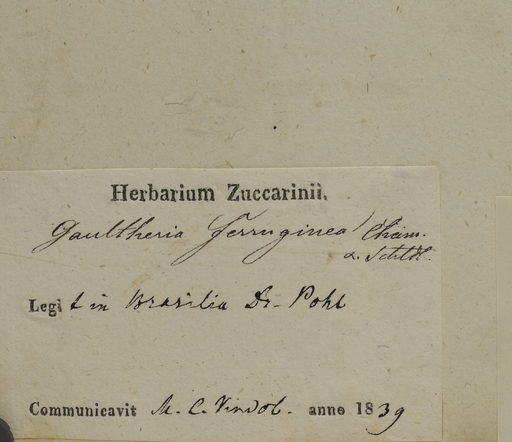 Herbarium Zuccarinii.
Gaultheria ferruginea Cham.
& Schltdl.
Legit in Brasilia Dr. Pohl
Communicavit M. C. Vindob. anno 1839